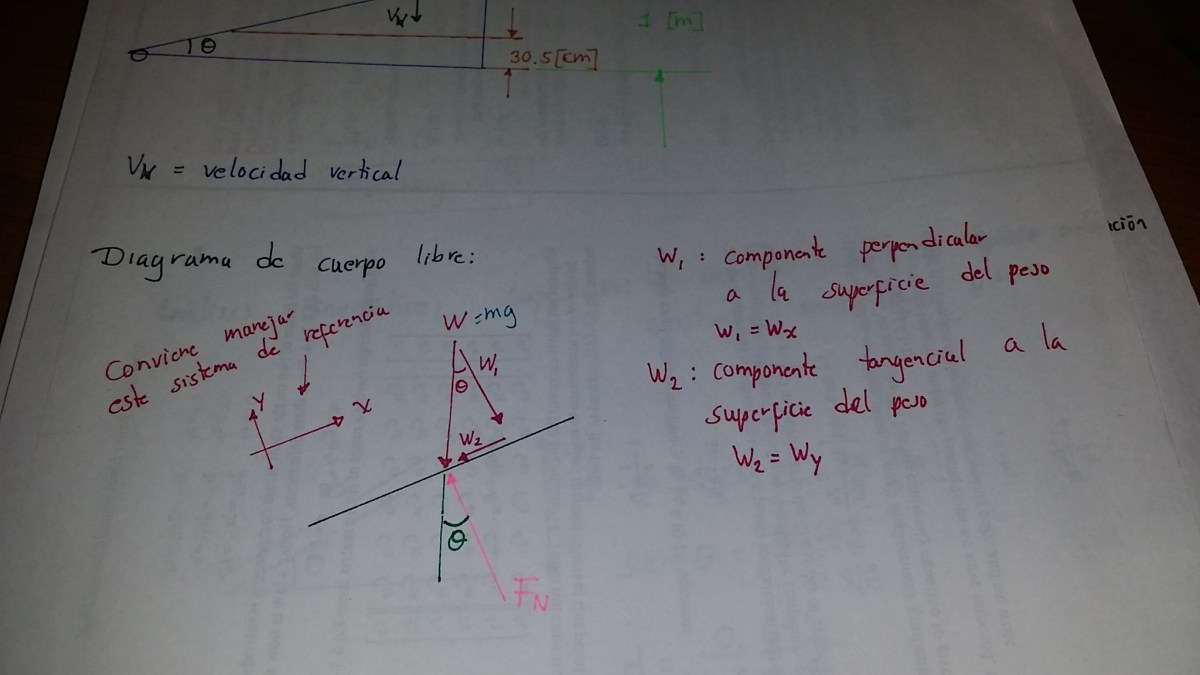 V_N
1 [m]
θ
30.5 [cm]
V_N = velocidad vertical
ición
Diagrama de cuerpo libre:
Conviene manejar
este sistema de referencia
Y
X
W = mg
W₁
θ
W₂
θ
F_N
W₁ : componente perpendicular
a la superficie del peso
W₁ = Wx
W₂ : componente tangencial a la
superficie del peso
W₂ = Wy